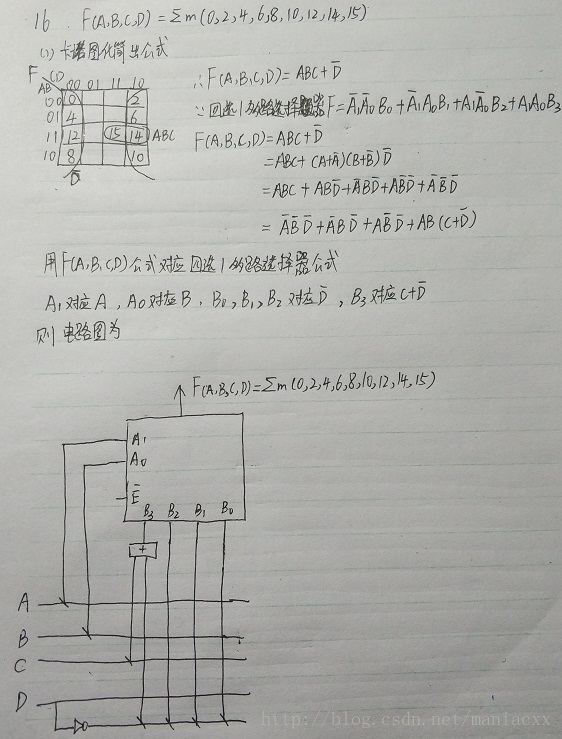 16. F(A,B,C,D) = Σm(0,2,4,6,8,10,12,14,15)
(1) 卡诺图化简出公式
F CD
AB 00 01 11 10
00 0 2
01 4 6
11 12 15 14 ABC
10 8 10
D̅
∴ F(A,B,C,D) = ABC + D̅
∵ 四选1多路选择器 F = A̅₁A̅₀B₀ + A̅₁A₀B₁ + A₁A̅₀B₂ + A₁A₀B₃
F(A,B,C,D) = ABC + D̅
= ABC + (A+A̅)(B+B̅)D̅
= ABC + ABD̅ + A̅BD̅ + AB̅D̅ + A̅B̅D̅
= A̅B̅D̅ + A̅BD̅ + AB̅D̅ + AB(C+D̅)
用F(A,B,C,D)公式对应四选1多路选择器公式
A₁对应A, A₀对应B, B₀,B₁,B₂对应D̅, B₃对应C+D̅
则电路图为
F(A,B,C,D) = Σm(0,2,4,6,8,10,12,14,15)
A₁
A₀
E̅
B₃ B₂ B₁ B₀
+
A
B
C
D
http://blog.csdn.net/maniacxx